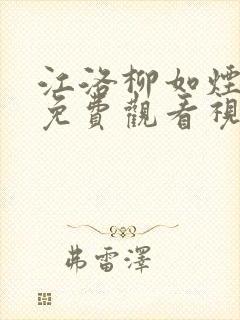 江洛柳如煙
免費觀看視
弗雷澤